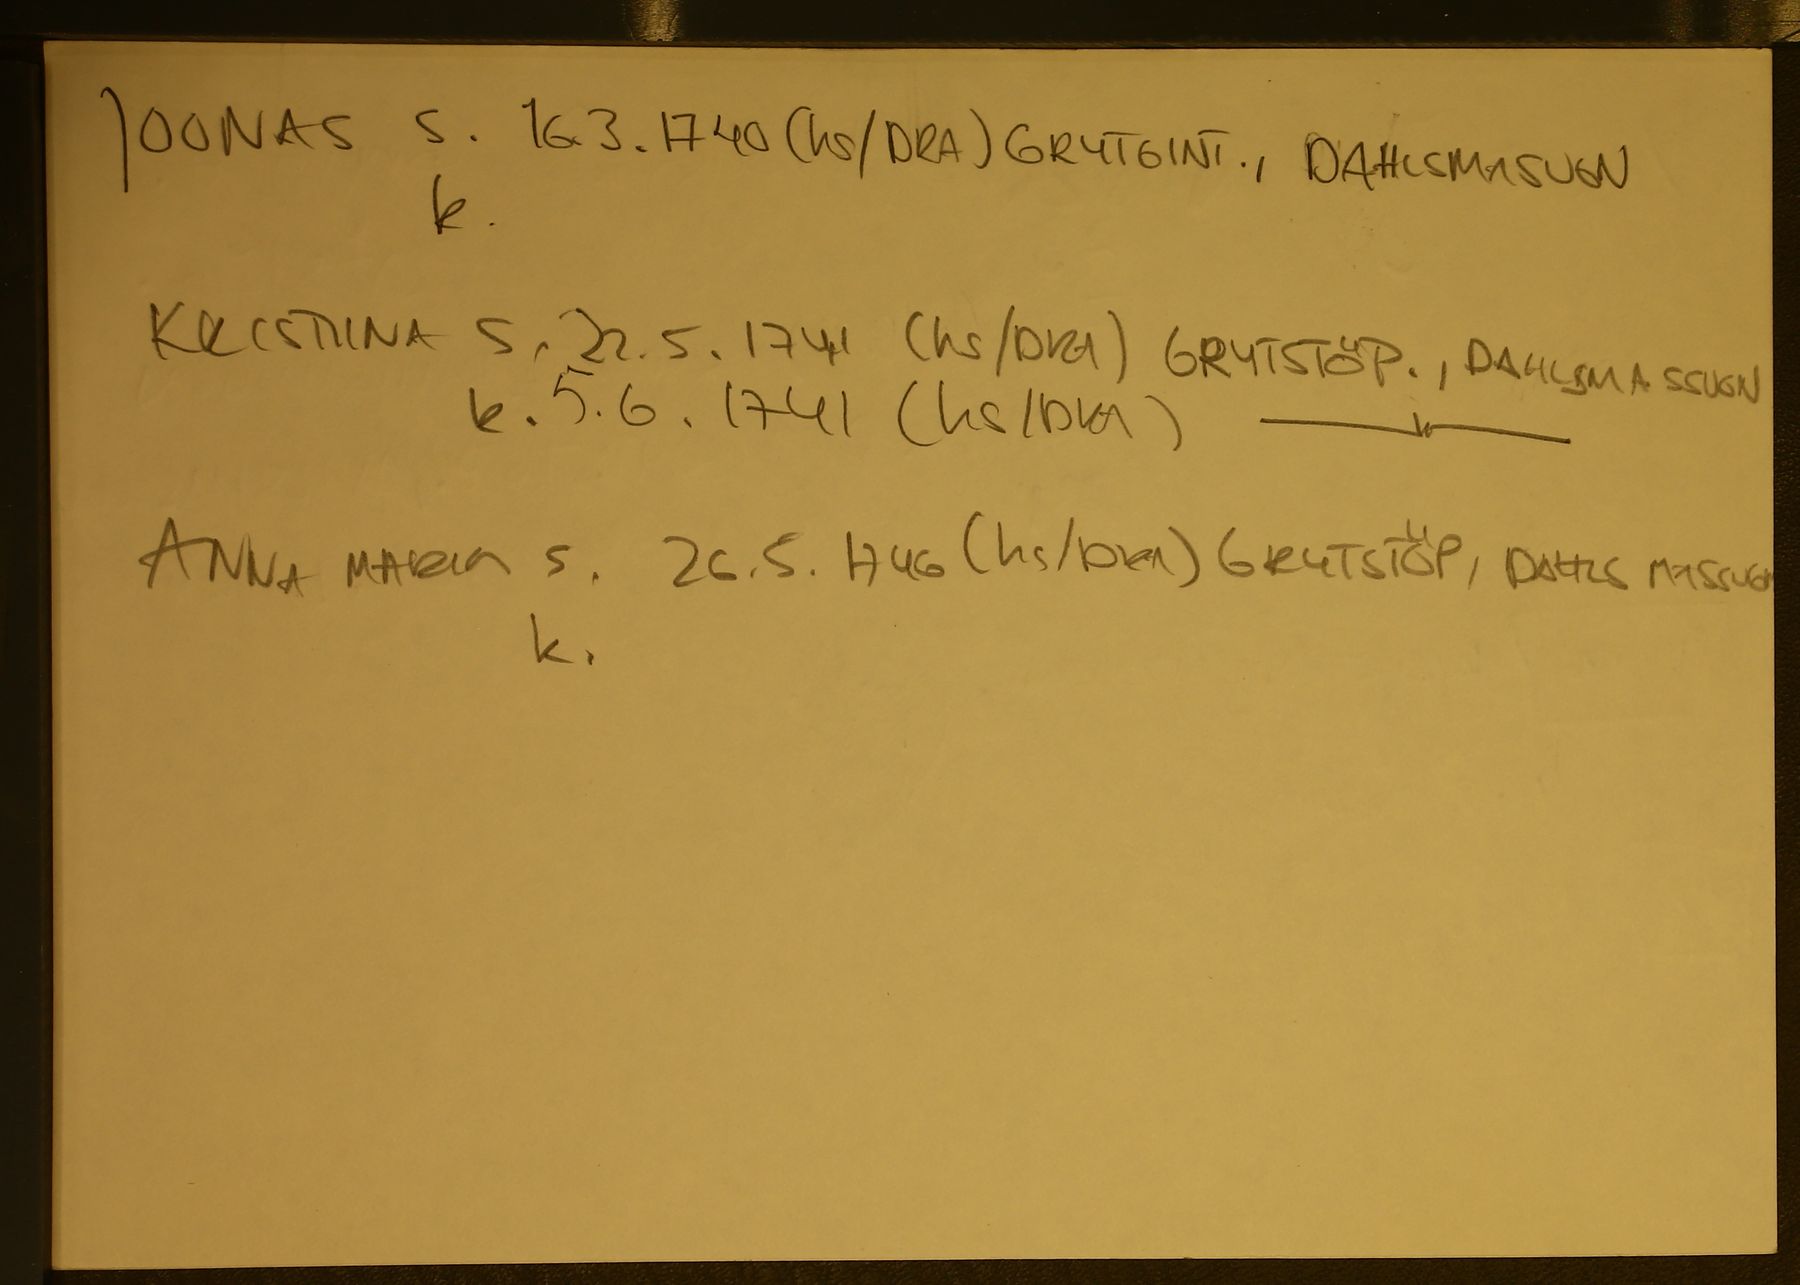 JOONAS S. 16.3.1740 (hs/DRA) GRYTGJNT., DAHLSMASUGN
k.
KRISTIINA S. 22.5.1741 (hs/DRA) GRYTSTÖP., DAHLSMASSUGN
k. 5.6.1741 (hs/DRA) —〃—
ANNA MARIA S. 26.5.1746 (hs/DRA) GRYTSTÖP, DAHLS MASSUGN
k.